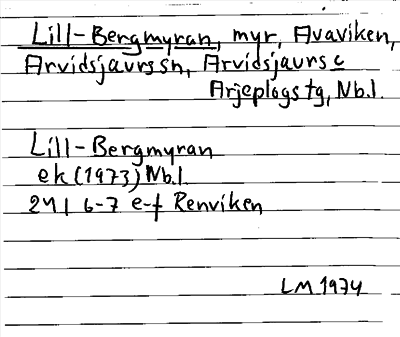 Lill-Bergmyran, myr, Avaviken,
Arvidsjaurs sn, Arvidsjaurs o
Arjeplogs tg, Nb.l.
Lill-Bergmyran
ek (1973) Nb.l.
24 I 6-7 e-f Renviken
LM 1974